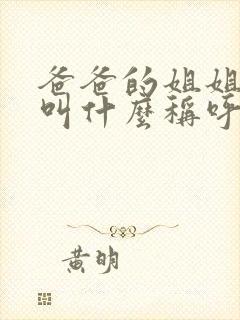 爸爸的姐姐
叫什麼稱呼
黃明